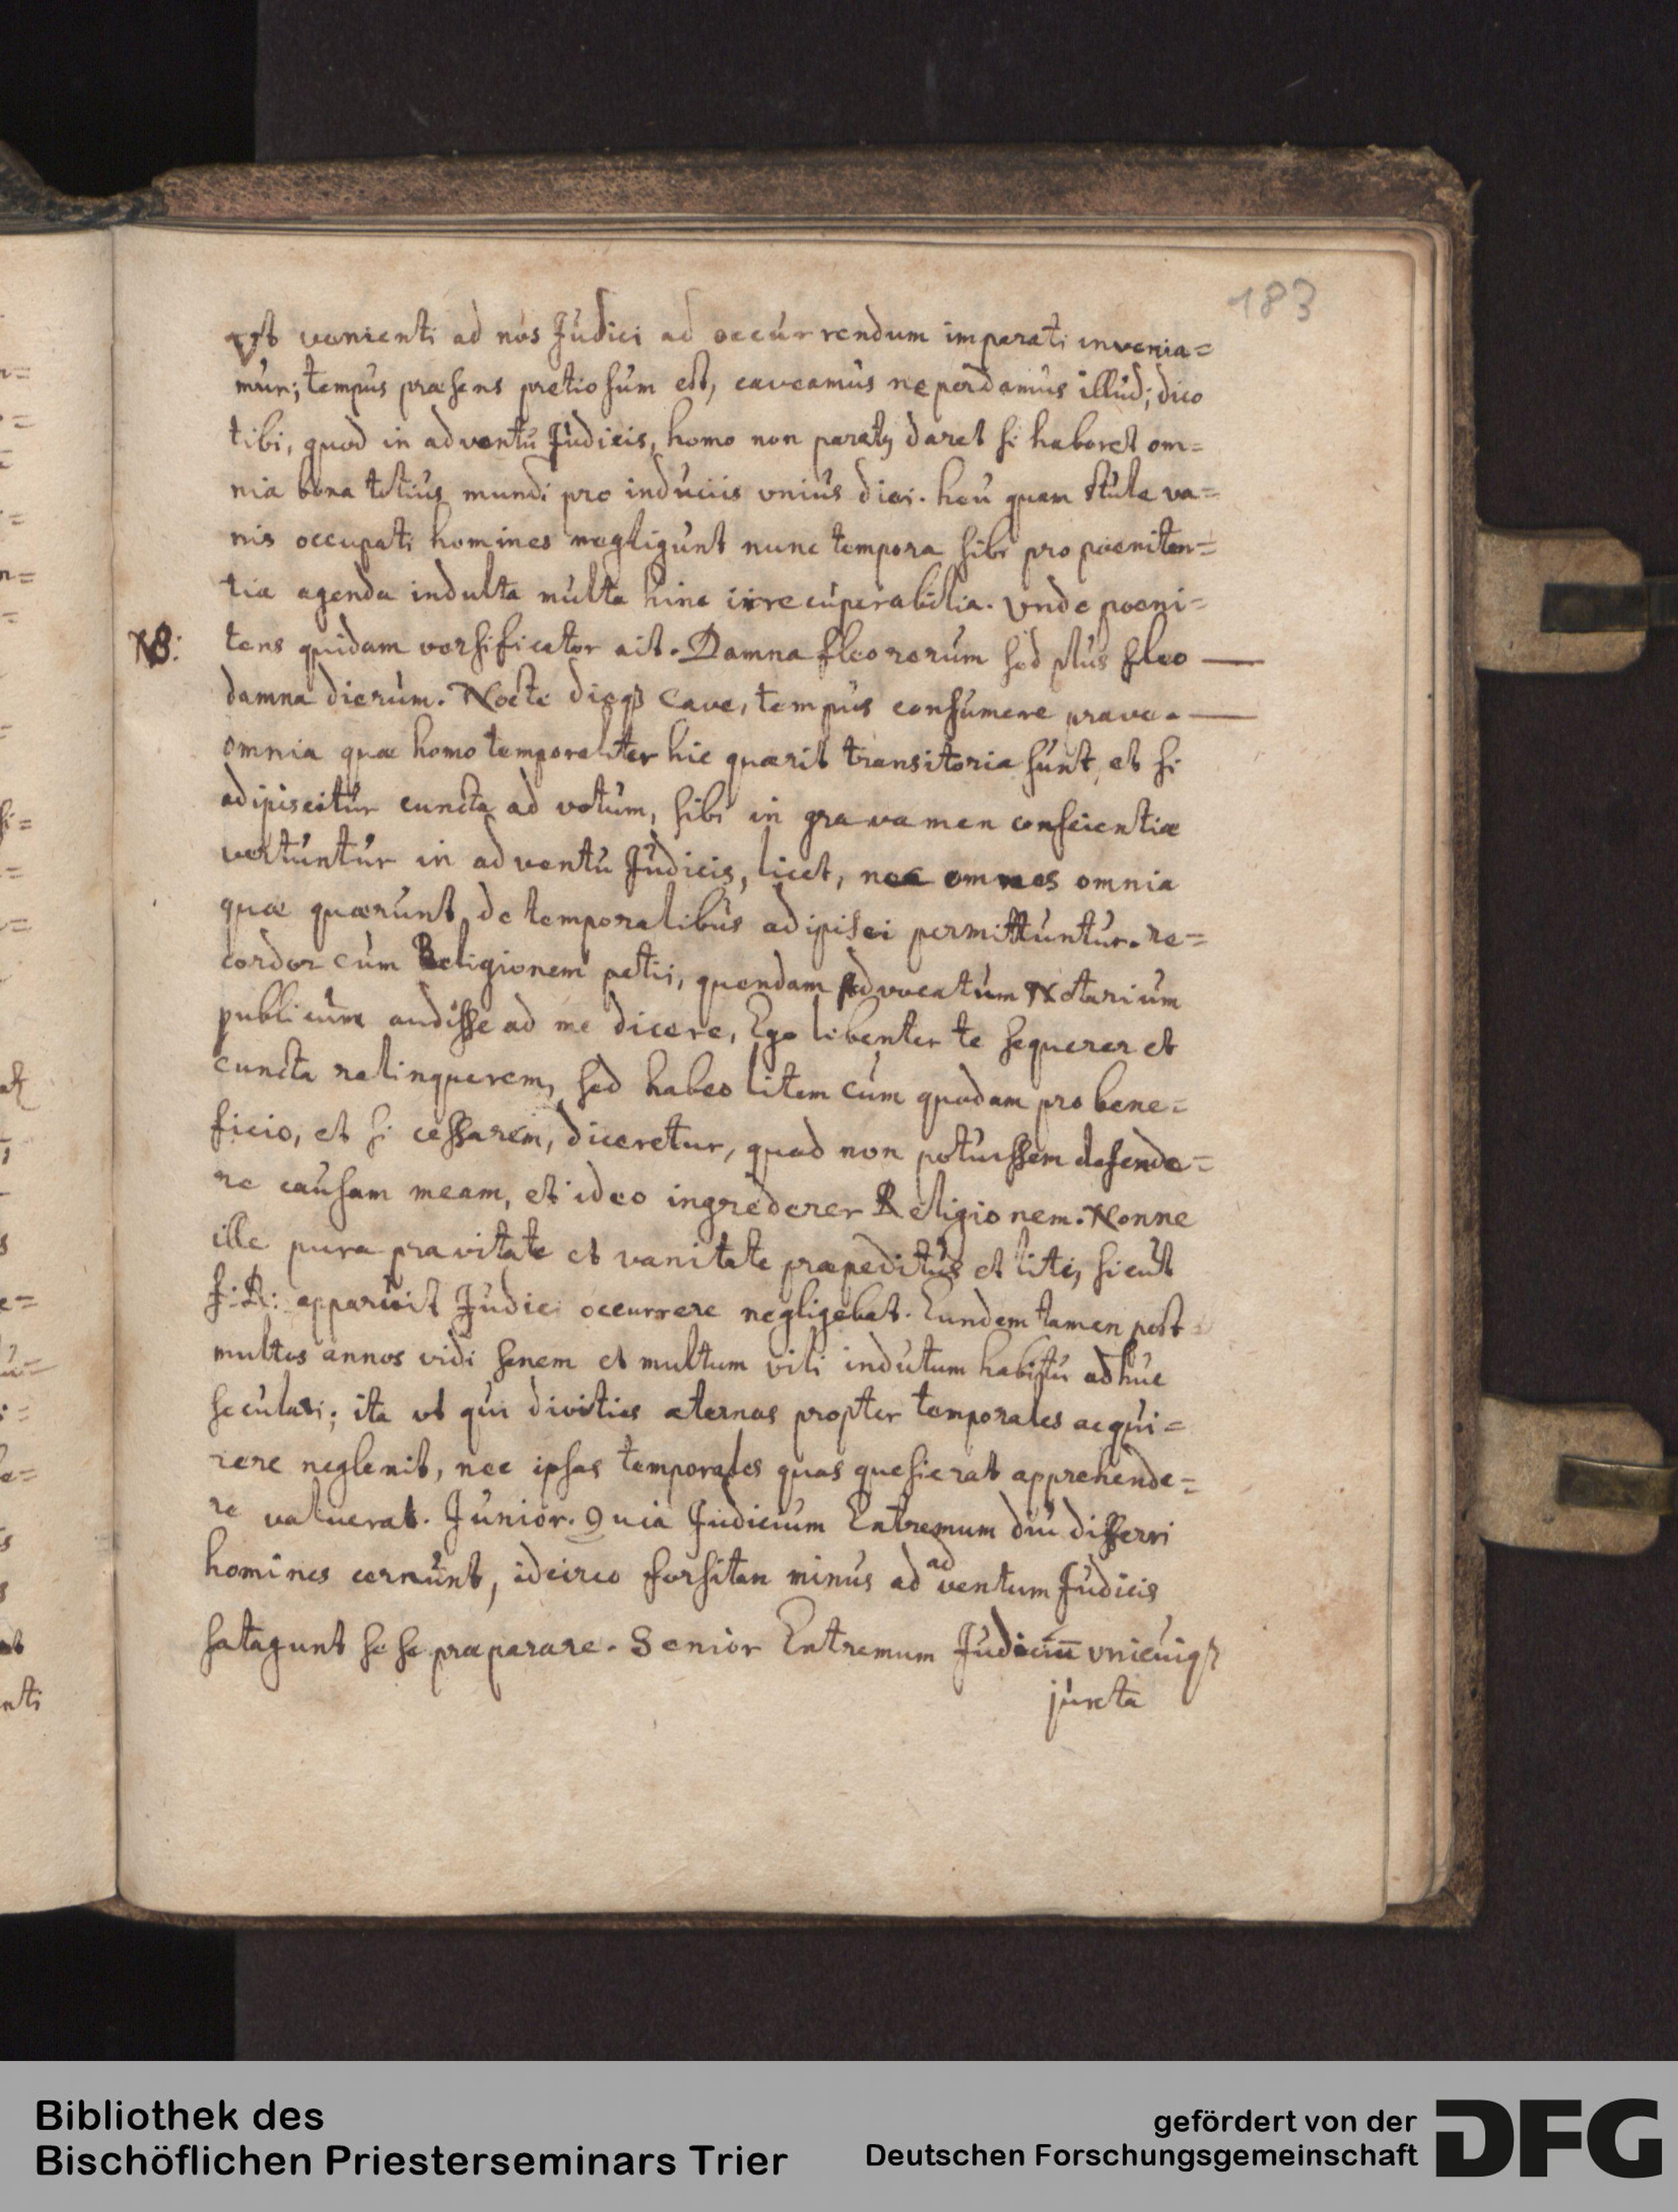 183
Vt venienti ad nos Judici ad occurrendum imparati invenia=
mur; tempus præsens pretiosum est, caveamus ne perdamus illud; dico
tibi, quod in adventu Judicis, homo non paratꝯ daret si haberet om=
nia bona totius mundi pro induciis vnius diei. heu quam stulte va=
nis occupati homines negligunt nunc tempora sibi pro pœniten=
tia agenda indulta multa hinc irrecuperabilia. Vnde pœni=
NB: tens quidam versificator ait. Damna fleo rerum sed plus fleo —
damna dierum. Nocte dieqꝫ cave, tempus consumere prave. —
omnia quæ homo temporaliter hic quærit transitoria sunt, et si
adipiscitur cuncta ad votum, sibi in gravamen conscientiæ
vertuntur in adventu Judicis, licet, nec omnes omnia
quæ quærunt de temporalibus adipisci permittuntur. re=
cordor cum Religionem petii, quendam Advocatum Notarium
publicum audisse ad me dicere, Ego libenter te sequerer et
cuncta relinquerem, sed habeo litem cum quodam pro bene=
ficio, et si cessarem, diceretur, quod non potuissem defende=
re causam meam, et ideo ingrederer Religionem. Nonne
ille pura pravitate et vanitate præpeditus et lite, sicut
f: R: apparuit Judici occurrere negligebat. Eundem tamen post
multos annos vidi senem et multum vili indutum habitu adhuc
seculari; ita vt qui divitias æternas propter temporales acqui=
rere neglexit, nec ipsas temporales quas quesierat apprehende=
re valuerat. Junior. Quia Judicium Extremum diu differri
homines cernunt, idcirco forsitan minus ad adventum Judicis
satagunt se se præparare. Senior Extremum Judiciū vnicuiqꝫ
juxta
Bibliothek des
Bischöflichen Priesterseminars Trier
gefördert von der
Deutschen Forschungsgemeinschaft
DFG